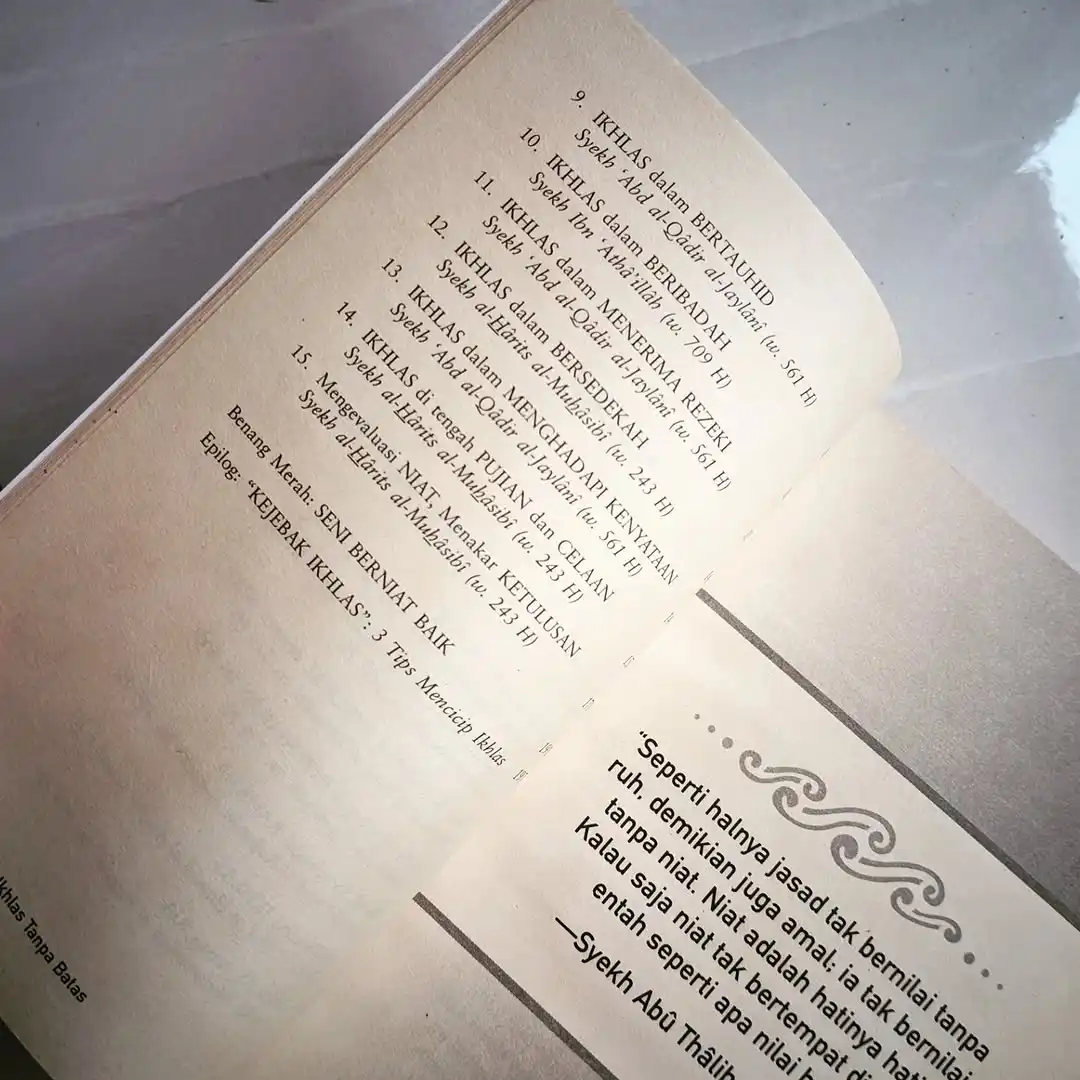 9. IKHLAS dalam BERTAUHID
Syekh ‘Abd al-Qâdir al-Jaylânî (w. 561 H)
10. IKHLAS dalam BERIBADAH
Syekh Ibn ‘Athâ’illâh (w. 709 H)
11. IKHLAS dalam MENERIMA REZEKI
Syekh ‘Abd al-Qâdir al-Jaylânî (w. 561 H)
12. IKHLAS dalam BERSEDEKAH
Syekh al-Hârits al-Muhâsibî (w. 243 H)
13. IKHLAS dalam MENGHADAPI KENYATAAN
Syekh ‘Abd al-Qâdir al-Jaylânî (w. 561 H)
14. IKHLAS di tengah PUJIAN dan CELAAN
Syekh al-Hârits al-Muhâsibî (w. 243 H)
15. Mengevaluasi NIAT, Menakar KETULUSAN
Syekh al-Hârits al-Muhâsibî (w. 243 H)
Benang Merah: SENI BERNIAT BAIK
Epilog: “KEJEBAK IKHLAS”: 3 Tips Mencicip Ikhlas
Ikhlas Tanpa Batas
“Seperti halnya jasad tak bernilai tanpa
ruh, demikian juga amal; ia tak bernilai
tanpa niat. Niat adalah hatinya
Kalau saja niat tak bertempat
entah seperti apa nilai
—Syekh Abû Thâlib